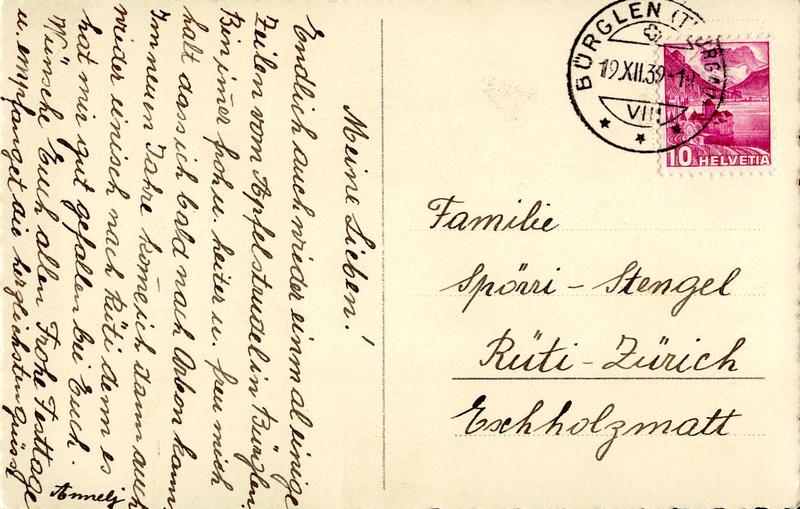 Meine Lieben!
Endlich auch wieder einmal einige
Zeilen vom Apfelstrudel in Bürglen.
Bin im̅er froh u. heiter u. freu mich
halt dass ich bald nach Arbon kann.
Im neuen Jahre kom̅e ich dann auch
wieder einisch nach Rüti denn es
hat mir gut gefallen bei Euch.
Wünsche Euch allen Frohe Festtage
u. empfanget die herzlichsten Grüsse
Annelj
BÜRGLEN (THURGAU)
19.XII.39-19
VIII
10 HELVETIA
Familie
Spörri-Stengel
Rüti-Zürich
Eschholzmatt